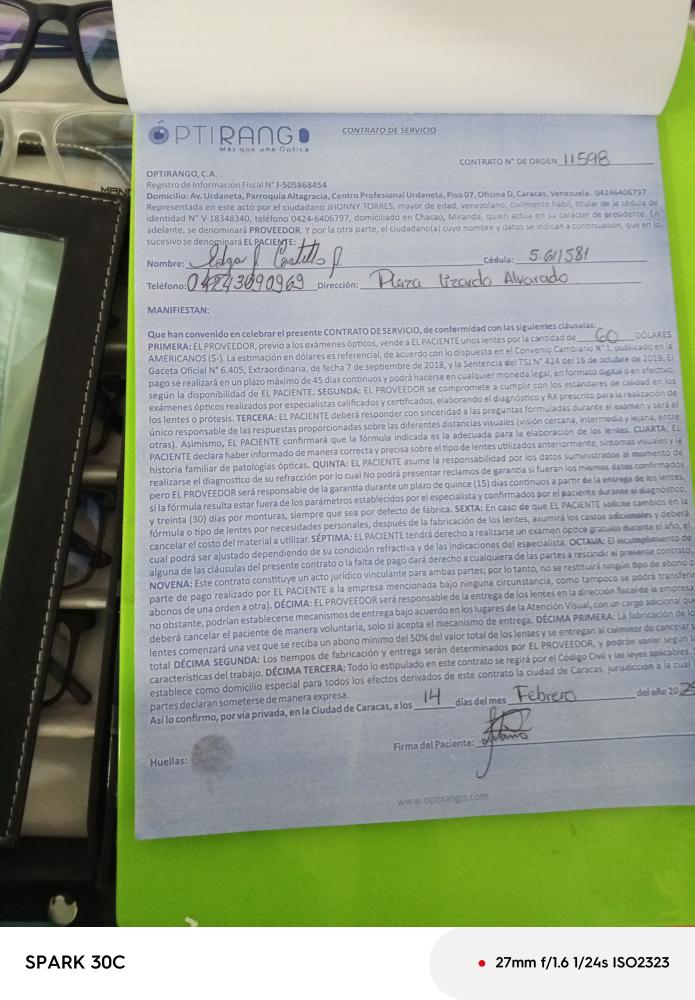 OPTIRANGO
Más que una Óptica
CONTRATO DE SERVICIO
CONTRATO N° DE ORDEN 11598
OPTIRANGO, C.A.
Registro de Información Fiscal N° J-505868454
Domicilio: Av. Urdaneta, Parroquia Altagracia, Centro Profesional Urdaneta, Piso 07, Oficina D, Caracas, Venezuela. 04246406797
Representada en este acto por el ciudadano JHONNY TORRES, mayor de edad, venezolano, civilmente hábil, titular de la cédula de
identidad N° V-18348340, teléfono 0424-6406797, domiciliado en Chacao, Miranda, quien actúa en su carácter de presidente. En
adelante, se denominará PROVEEDOR. Y por la otra parte, el ciudadano(a) cuyo nombre y datos se indican a continuación, que en lo
sucesivo se denominará EL PACIENTE:
Nombre: Edgar Castillo Cédula: 5.611581
Teléfono: 04243090969 Dirección: Plaza Lizardo Alvarado
MANIFIESTAN:
Que han convenido en celebrar el presente CONTRATO DE SERVICIO, de conformidad con las siguientes cláusulas:
PRIMERA: EL PROVEEDOR, previo a los exámenes ópticos, vende a EL PACIENTE unos lentes por la cantidad de 60 DÓLARES
AMERICANOS ($-). La estimación en dólares es referencial, de acuerdo con lo dispuesto en el Convenio Cambiario N° 1, publicado en la
Gaceta Oficial N° 6.405, Extraordinaria, de fecha 7 de septiembre de 2018, y la Sentencia del TSJ N° 424 del 16 de octubre de 2019. El
pago se realizará en un plazo máximo de 45 días continuos y podrá hacerse en cualquier moneda legal, en formato digital o en efectivo,
según la disponibilidad de EL PACIENTE. SEGUNDA: EL PROVEEDOR se compromete a cumplir con los estándares de calidad en los
exámenes ópticos realizados por especialistas calificados y certificados, elaborando el diagnóstico y RX prescrito para la realización de
los lentes o prótesis. TERCERA: EL PACIENTE deberá responder con sinceridad a las preguntas formuladas durante el examen y será el
único responsable de las respuestas proporcionadas sobre las diferentes distancias visuales (visión cercana, intermedia y lejana, entre
otras). Asimismo, EL PACIENTE confirmará que la fórmula indicada es la adecuada para la elaboración de los lentes. CUARTA: EL
PACIENTE declara haber informado de manera correcta y precisa sobre el tipo de lentes utilizados anteriormente, síntomas visuales y la
historia familiar de patologías ópticas. QUINTA: EL PACIENTE asume la responsabilidad por los datos suministrados al momento de
realizarse el diagnostico de su refracción por lo cual No podrá presentar reclamos de garantía si fueran los mismos datos confirmados
pero EL PROVEEDOR será responsable de la garantía durante un plazo de quince (15) días continuos a partir de la entrega de los lentes,
si la fórmula resulta estar fuera de los parámetros establecidos por el especialista y confirmados por el paciente durante el diagnóstico,
y treinta (30) días por monturas, siempre que sea por defecto de fábrica. SEXTA: En caso de que EL PACIENTE solicite cambios en la
fórmula o tipo de lentes por necesidades personales, después de la fabricación de los lentes, asumirá los costos adicionales y deberá
cancelar el costo del material a utilizar. SÉPTIMA: EL PACIENTE tendrá derecho a realizarse un examen óptico gratuito durante el año, el
cual podrá ser ajustado dependiendo de su condición refractiva y de las indicaciones del especialista. OCTAVA: El incumplimiento de
alguna de las cláusulas del presente contrato o la falta de pago dará derecho a cualquiera de las partes a rescindir el presente contrato.
NOVENA: Este contrato constituye un acto jurídico vinculante para ambas partes; por lo tanto, no se restituirá ningún tipo de abono o
parte de pago realizado por EL PACIENTE a la empresa mencionada bajo ninguna circunstancia, como tampoco se podrá transferir
abonos de una orden a otra). DÉCIMA: EL PROVEEDOR será responsable de la entrega de los lentes en la dirección fiscal de la empresa
no obstante, podrían establecerse mecanismos de entrega bajo acuerdo en los lugares de la Atención Visual, con un cargo adicional que
deberá cancelar el paciente de manera voluntaria, solo si acepta el mecanismo de entrega. DÉCIMA PRIMERA: La fabricación de lo
lentes comenzará una vez que se reciba un abono mínimo del 50% del valor total de los lentes y se entregan al culminar de cancelar
total DÉCIMA SEGUNDA: Los tiempos de fabricación y entrega serán determinados por EL PROVEEDOR, y podrán variar según
características del trabajo. DÉCIMA TERCERA: Todo lo estipulado en este contrato se regirá por el Código Civil y las leyes aplicables.
establece como domicilio especial para todos los efectos derivados de este contrato la ciudad de Caracas, jurisdicción a la cual
partes declaran someterse de manera expresa.
Así lo confirmo, por vía privada, en la Ciudad de Caracas, a los 14 días del mes Febrero del año 20
Huellas:
Firma del Paciente:
www.optirango.com
SPARK 30C
27mm f/1.6 1/24s ISO2323